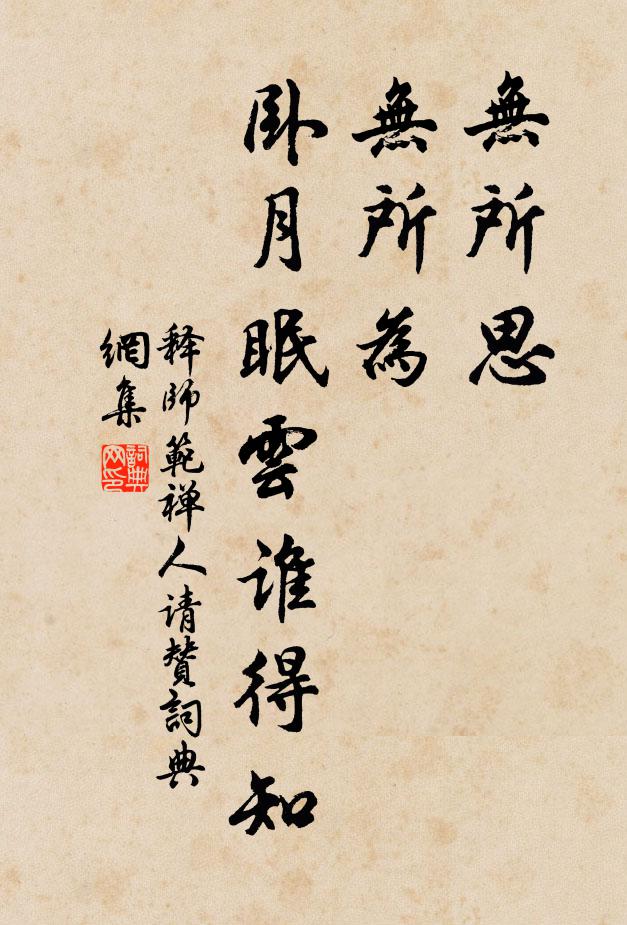 無所思
無所為
卧月眠雲谁得知
释師範禅人请賛詞典
網集
詞典網印